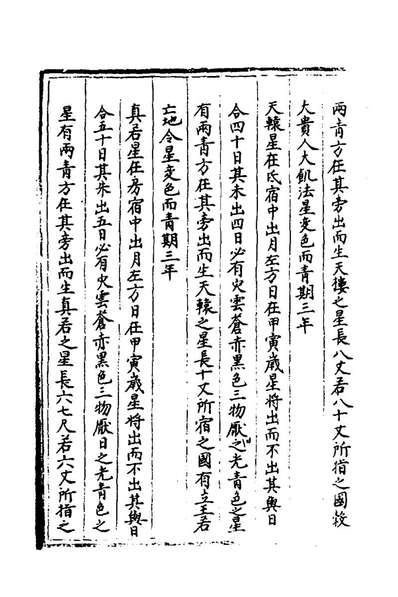 兩青方在其旁出而生天樓之星長八丈若八十丈所指之國殺
大貴人大飢法星变色而青期三年
天轅星在氐宿中出月左方日在甲寅歲星將出而不出其與日
合四十日其未出四日必有火雲蒼赤黑色三物厭之光青色之星
有兩青方在其旁出而生天轅之星長十丈所宿之國有立王若
亡地令星变色而青期三年
真若星在房宿中出月左方日在甲寅歲星將出而不出其與日
合五十日其未出五日必有火雲蒼赤黑色三物厭日之光青色之
星有兩青方在其旁出而生真若之星長六七尺若六丈所指之